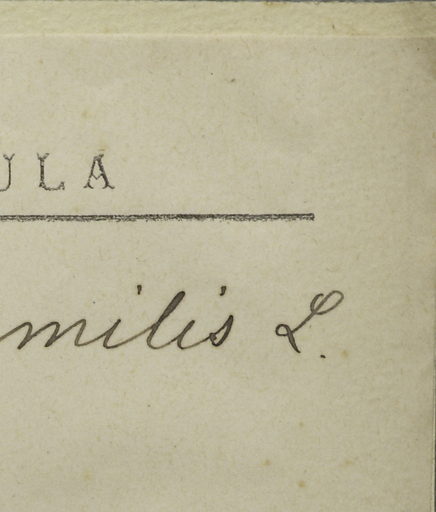 ULA
milis L.